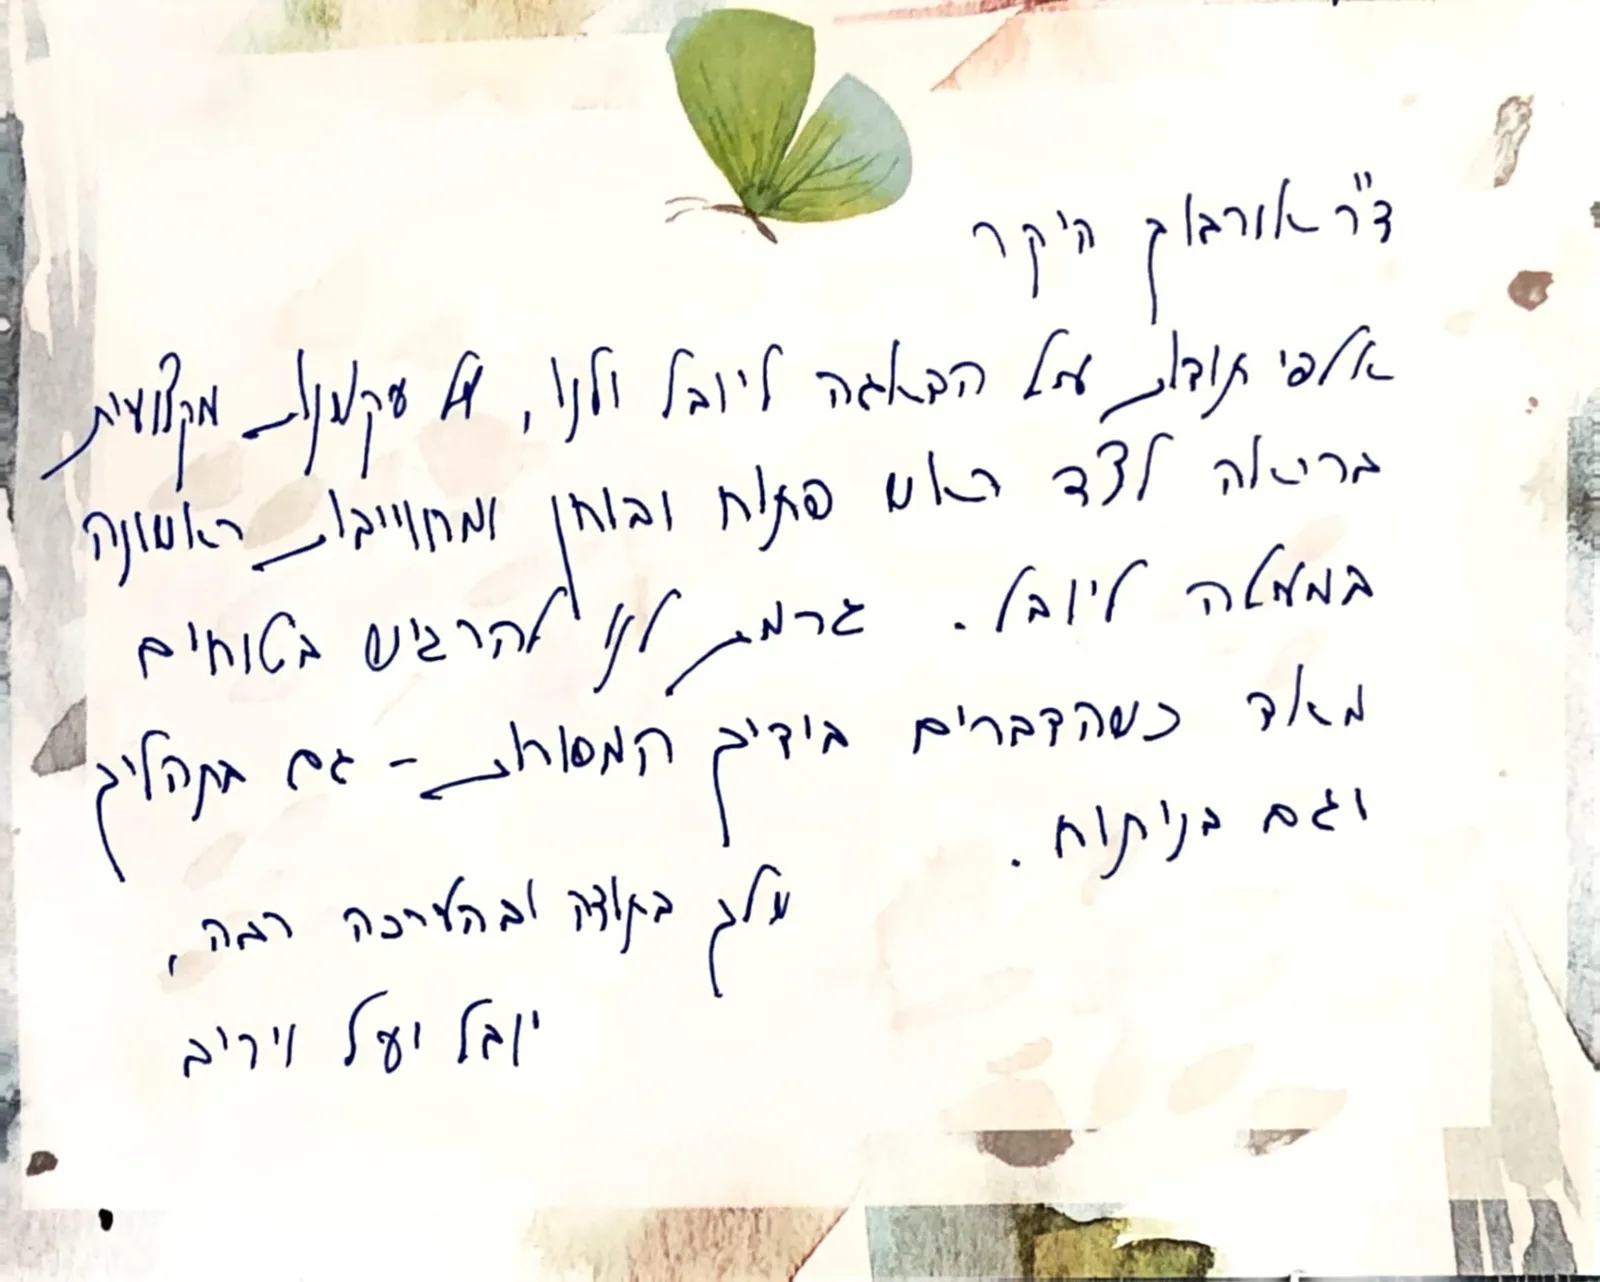 ד"ר אורבוך היקר
אלפי תודות על הדאגה ליובל ולנו, על עקשנות מקצועית
בריאה לצד ראש פתוח ובוחן ומחוייבות ראשונה
במעלה ליובל. גרמת לנו להרגיש בטוחים
מאד כשהדברים בידיך המסורות - גם בתהליך
וגם בניתוח.
שלך בתודה ובהערכה רבה,
יובל יעל ויריב